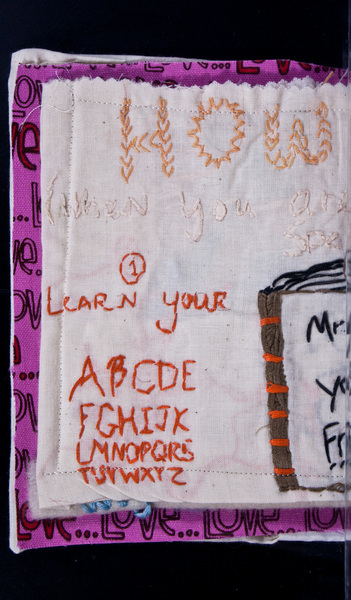 HOW
(When you are
Spe
1
LEARN YOUR
ABCDE
FGHIJK
LMNOPQRS
TUVWXYZ
Mr
yo
Fr
Love...
Love...
Love...